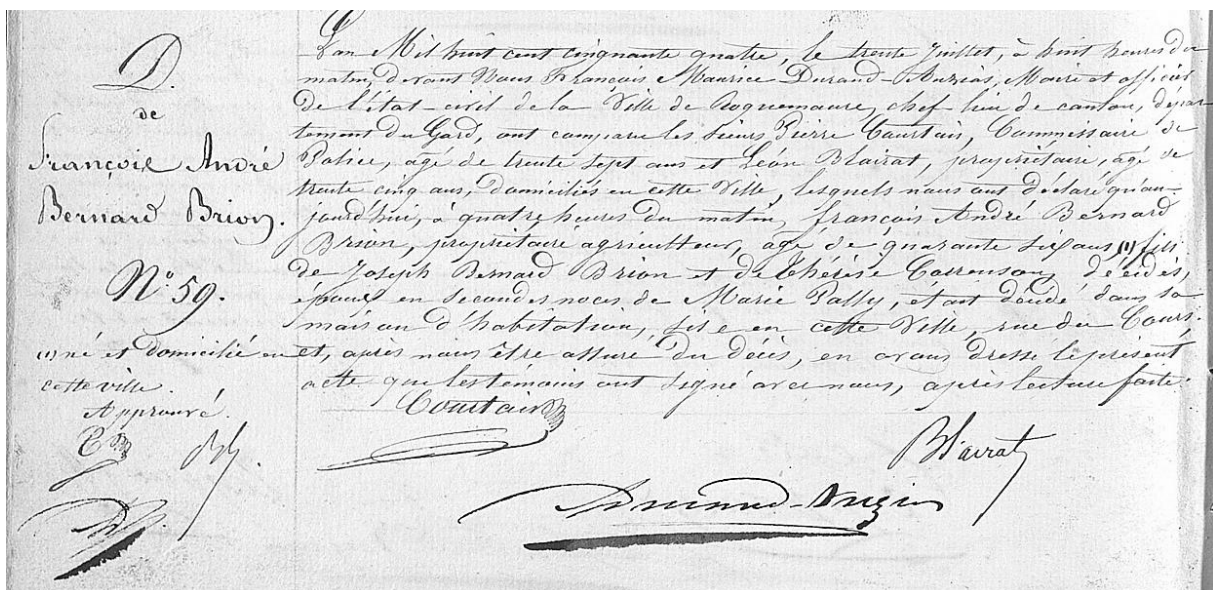 D.
de
François André
Bernard Brion.
N° 59.
(1) né et domicilié en
cette ville.
Approuvé.
L'an Mil huit cent cinquante quatre, le trente Juillet, à huit heures du
matin, devant Nous François Maurice Durand-Auzias, Maire et officier
de l'état-civil de la Ville de Roquemaure, chef lieu de canton, dépar-
tement du Gard, ont comparu les sieurs Pierre Courtain, Commissaire de
Police, agé de trente sept ans et Léon Blairat, propriétaire, agé de
trente cinq ans, domiciliés en cette Ville, lesquels nous ont déclaré qu'au-
jourd'hui, à quatre heures du matin, françois André Bernard
Brion, propriétaire agriculteur, agé de quarante six ans (1) fils
de Joseph Bernard Brion et de Thérèse décédés,
époux en secondes noces de Marie Pally, étant décédé dans sa
maison d'habitation, sise en cette Ville, rue du Cours.
et, après nous être assuré du décès, en avons dressé le présent
acte que les témoins ont signé avec nous, après lecture faite.
Courtain
Blairat
Durand-Auzias